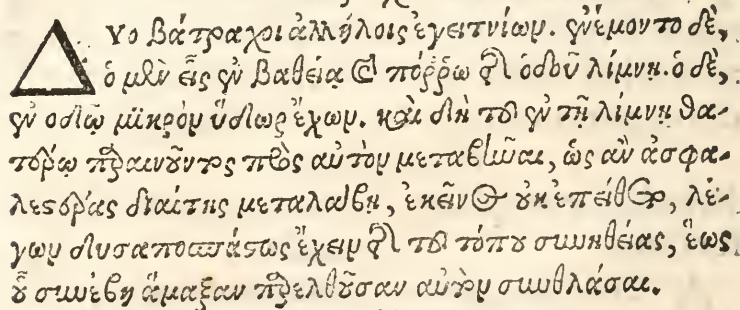 Δύο βάτραχοι ἀλλήλοις ἐγειτνίων. ἐνέμοντο δὲ,
ὁ μὲν εἰς ἐν βαθείᾳ καὶ πόῤῥω τῆς ὁδοῦ λίμνῃ. ὁ δὲ,
ἐν ὁδῷ μικρὸν ὕδωρ ἔχων. καὶ δὴ τοῦ ἐν τῇ λίμνῃ θα-
τέρῳ παραινοῦντος πρὸς αὐτὸν μεταβῆναι, ὡς ἂν ἀσφα-
λεστέρας διαίτης μεταλάβῃ, ἐκεῖνος οὐκ ἐπείθετο, λέ-
γων δυσαποσπάστως ἔχειν τῆς τοῦ τόπου συνηθείας, ἕως
οὗ συνέβη ἅμαξαν παρελθοῦσαν αὐτὸν συνθλάσαι.